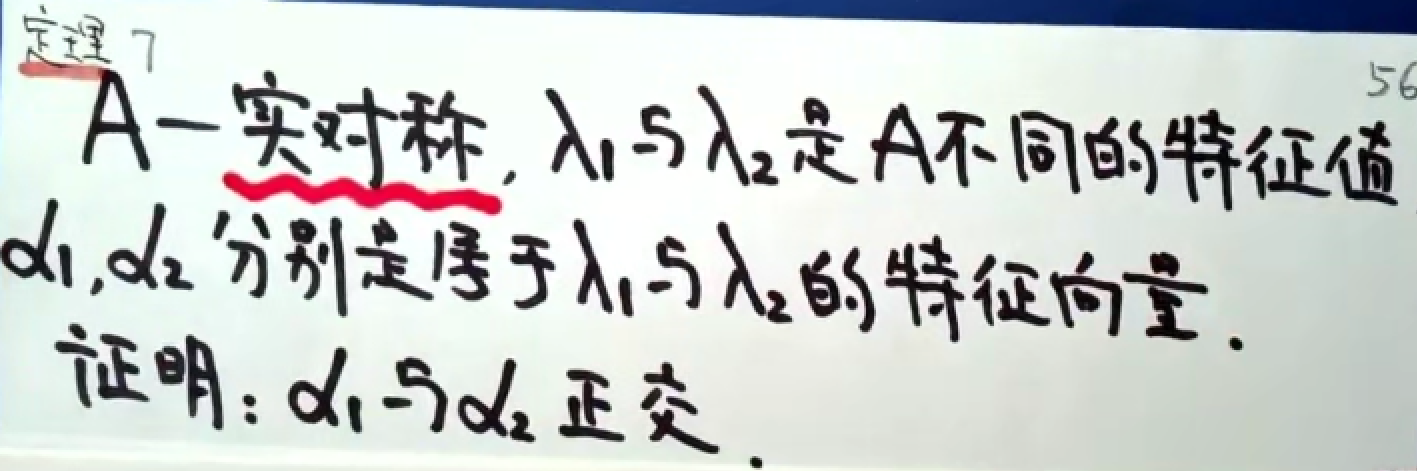 定理7
56
A—实对称, λ₁与λ₂是A不同的特征值
α₁,α₂分别是属于λ₁与λ₂的特征向量.
证明: α₁与α₂正交.